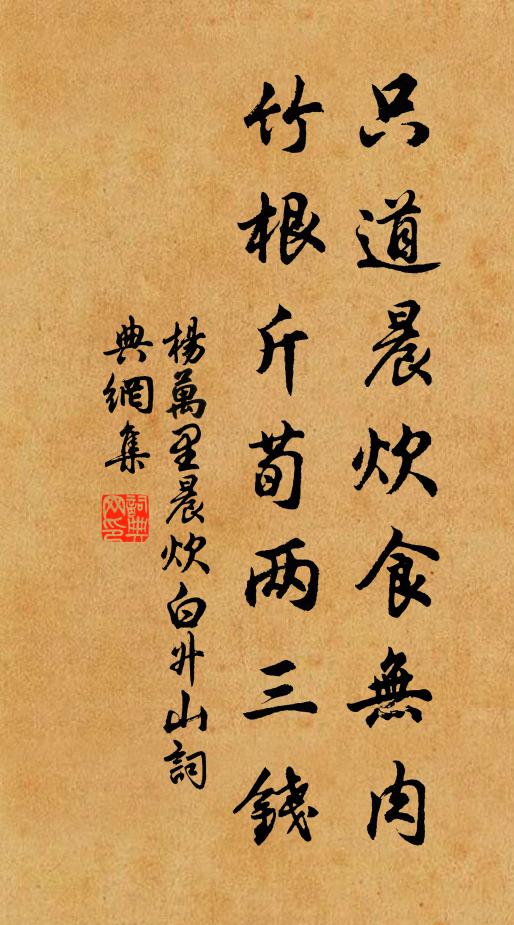 只道晨炊食無肉
竹根斤荀两三錢
楊萬里晨炊白升山詞
典網集
詞典
网印